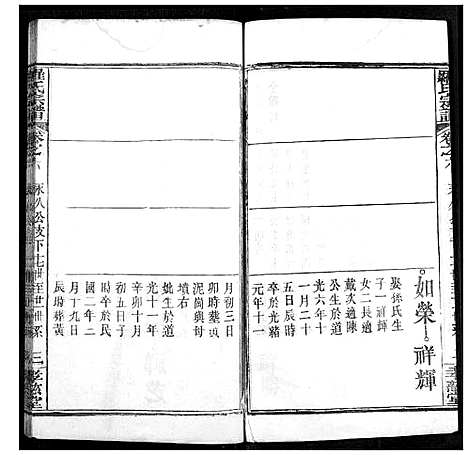 羅氏宗譜
卷之八
如榮
祥輝
娶孫氏生
子一祥輝
女二長適
戴次適陳
公生於道
光六年十
一月二十
五日辰時
卒於光緒
元年十一
月初三日
卯時墓東
泥崗與母
墳右
妣生於道
光十一年
辛卯十月
初五日子
時卒於民
國二年二
月十九日
辰時葬黃
羅氏宗譜
卷之八
永八公支下
三